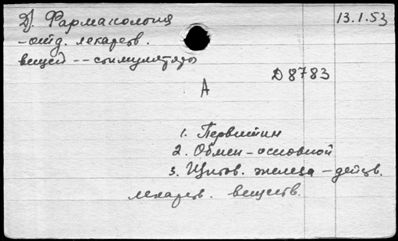 Д). Фармакология 13.1.53
- отд. лекарств.
веществ -- стимуляторы
Д 8783
А
1. Первитин
2. Обмен - основной
3. Щитов. железа - действ.
лекарств. веществ.